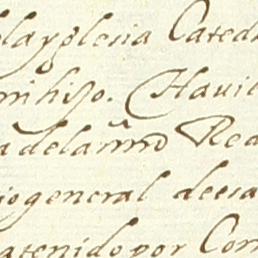 delayglesia Cated
mi hijo. (Havie
adelanño Rea
iogeneral deesa
atenido por Con